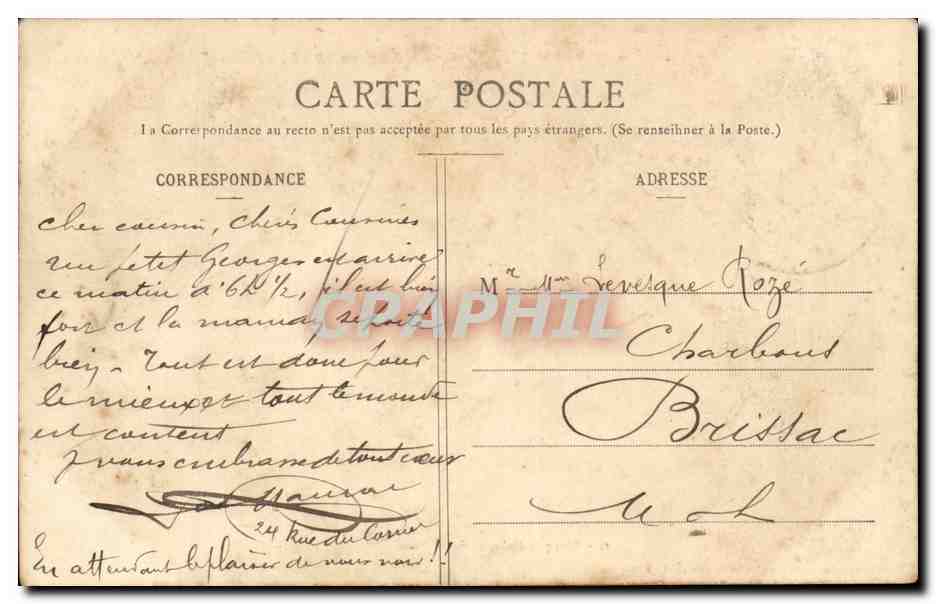 CARTE POSTALE
La Correspondance au recto n'est pas acceptée par tous les pays étrangers. (Se renseihner à la Poste.)
CORRESPONDANCE
cher cousin, chères Cousines
un petit Georges est arrivé
ce matin à 6h 1/2, il est bien
fort et la maman se porte
bien. Tout est donc pour
le mieux et tout le monde
est content
Je vous embrasse de tout coeur
24 Rue du
En attendant le plaisir de vous voir!!
ADRESSE
Mr Mme Levesque Rozé
Charbons
Brissac
M et L
CRAPHIL